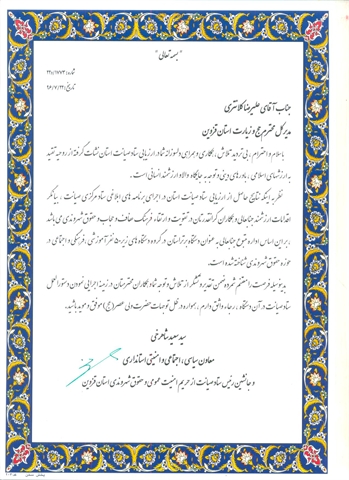 "بسمه تعالی"
شماره: ۲۲۱/۱۷۷۳
تاریخ: ۹۶/۷/۲۲
جناب آقای علیرضا کلانتری
مدیرکل محترم حج و زیارت استان قزوین
با سلام و احترام، بی تردید تلاش، همکاری و همراهی دلسوزانه شما در ارزیابی ستاد صیانت استان نشأت گرفته از روحیه تقید
به ارزشهای اسلامی، باورهای دینی و توجه به جایگاه والا و ارزشمند انسانی است.
نظر به اینکه نتایج حاصل از ارزیابی ستاد صیانت استان در اجرای برنامه های ابلاغی ستاد مرکزی صیانت، بیانگر
اقدامات ارزشمند جنابعالی و همکاران گرانقدرتان در تقویت و ارتقاء فرهنگ عفاف و حجاب و حقوق شهروندی می باشد
بر این اساس اداره متبوع جنابعالی به عنوان دستگاه برتر استان در گروه دستگاه های زیر ۵۰ نفر آموزشی، فرهنگی و اجتماعی در
حوزه حقوق شهروندی شناخته شده است.
بدینوسیله فرصت را مغتنم شمرده و ضمن تقدیر و تشکر از تلاش و توجه شما و همکاران محترمتان در زمینه اجرایی نمودن دستورالعمل
ستاد صیانت در آن دستگاه، رجاء واثق دارم، همواره در ظل توجهات حضرت ولی عصر (عج) موفق و موید باشید.
سید سعید شاهرخی
معاون سیاسی، اجتماعی و امنیتی استانداری
و جانشین رئیس ستاد صیانت از حریم امنیت عمومی و حقوق شهروندی استان قزوین